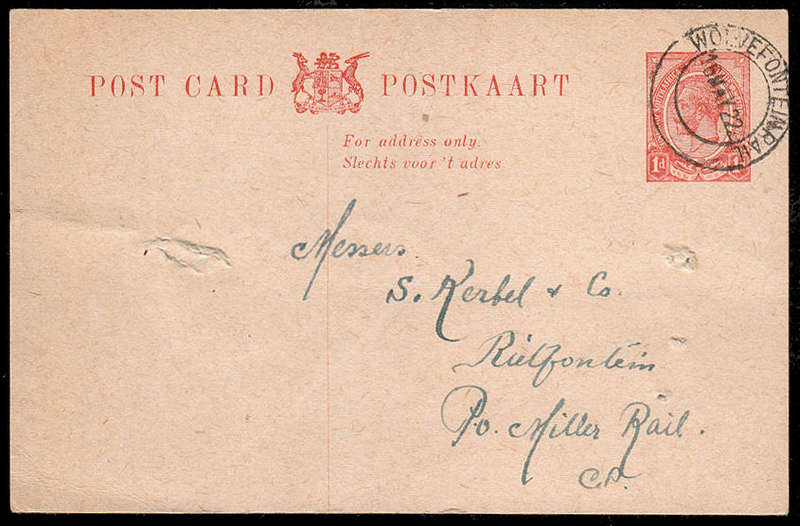 POST CARD POSTKAART
For address only.
Slechts voor 't adres
WOLVEFONTEIN RAIL
MAY 22
1d
Messers
S. Kerbel & Co.
Rietfontein
Po. Miller Rail.
C.P.